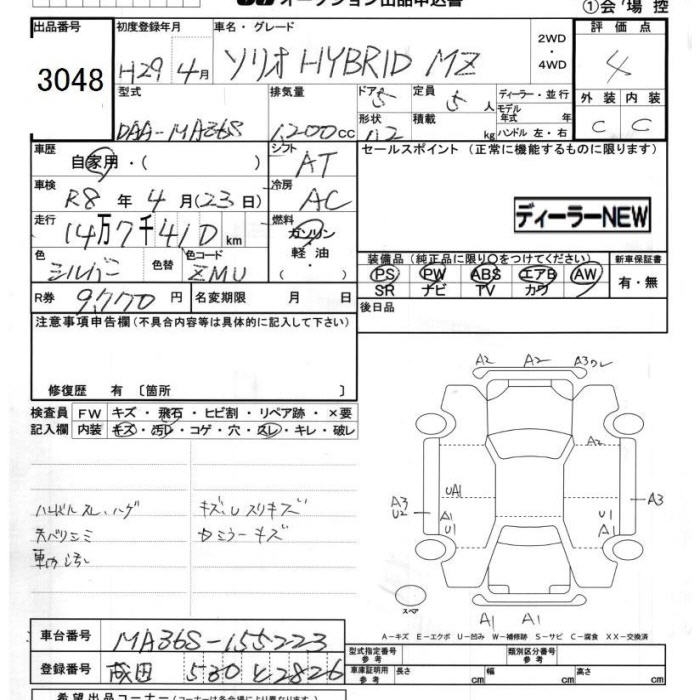 オークション出品申込書
①会場控
出品番号
3048
初度登録年月
H29 4月
車名・グレード
ソリオ HYBRID MZ
2WD
・
4WD
評価点
4
型式
DAA-MA36S
排気量
1,200cc
ドア 5
形状
定員 5人
積載 kg
ディーラー・並行
モデル
年式 年
ハンドル 左・右
外装 内装
C C
車歴
自家用・( )
シフト
AT
セールスポイント (正常に機能するものに限ります)
車検
R8 年 4 月(23 日)
冷房
AC
ディーラーNEW
走行
14万7千410 km
燃料
ガソリン
軽油
( )
色
シルバー
色替
色コード
ZMU
装備品 (純正品に限り○をつけてください)
新車保証書
PS PW ABS エアB AW
SR ナビ TV カワ
有・無
R券 9,770 円
名変期限 月 日
後日品
注意事項申告欄 (不具合内容等は具体的に記入して下さい)
修復歴 有 〔箇所 〕
検査員
記入欄
FW キズ・飛石・ヒビ割・リペア跡・×要
内装 キズ・汚レ・コゲ・穴・スレ・キレ・破レ
ハンドルスレ、ハゲ
天バリシミ
キズUスリキズ
ミラーキズ
A2 A2 A3ワレ
A2
UA1
A3
U2
A1
U1
U1
A1
A3
スペア
A1 A1
A−キズ E−エクボ U−凹み W−補修跡 S−サビ C−腐食 XX−交換済
車台番号 MA36S-155223
登録番号 成田 530 と 2826
型式指定番号
参考
類別区分番号
参考
車庫証明用
参考
長さ cm
幅 cm
高さ cm
希望出品コーナー